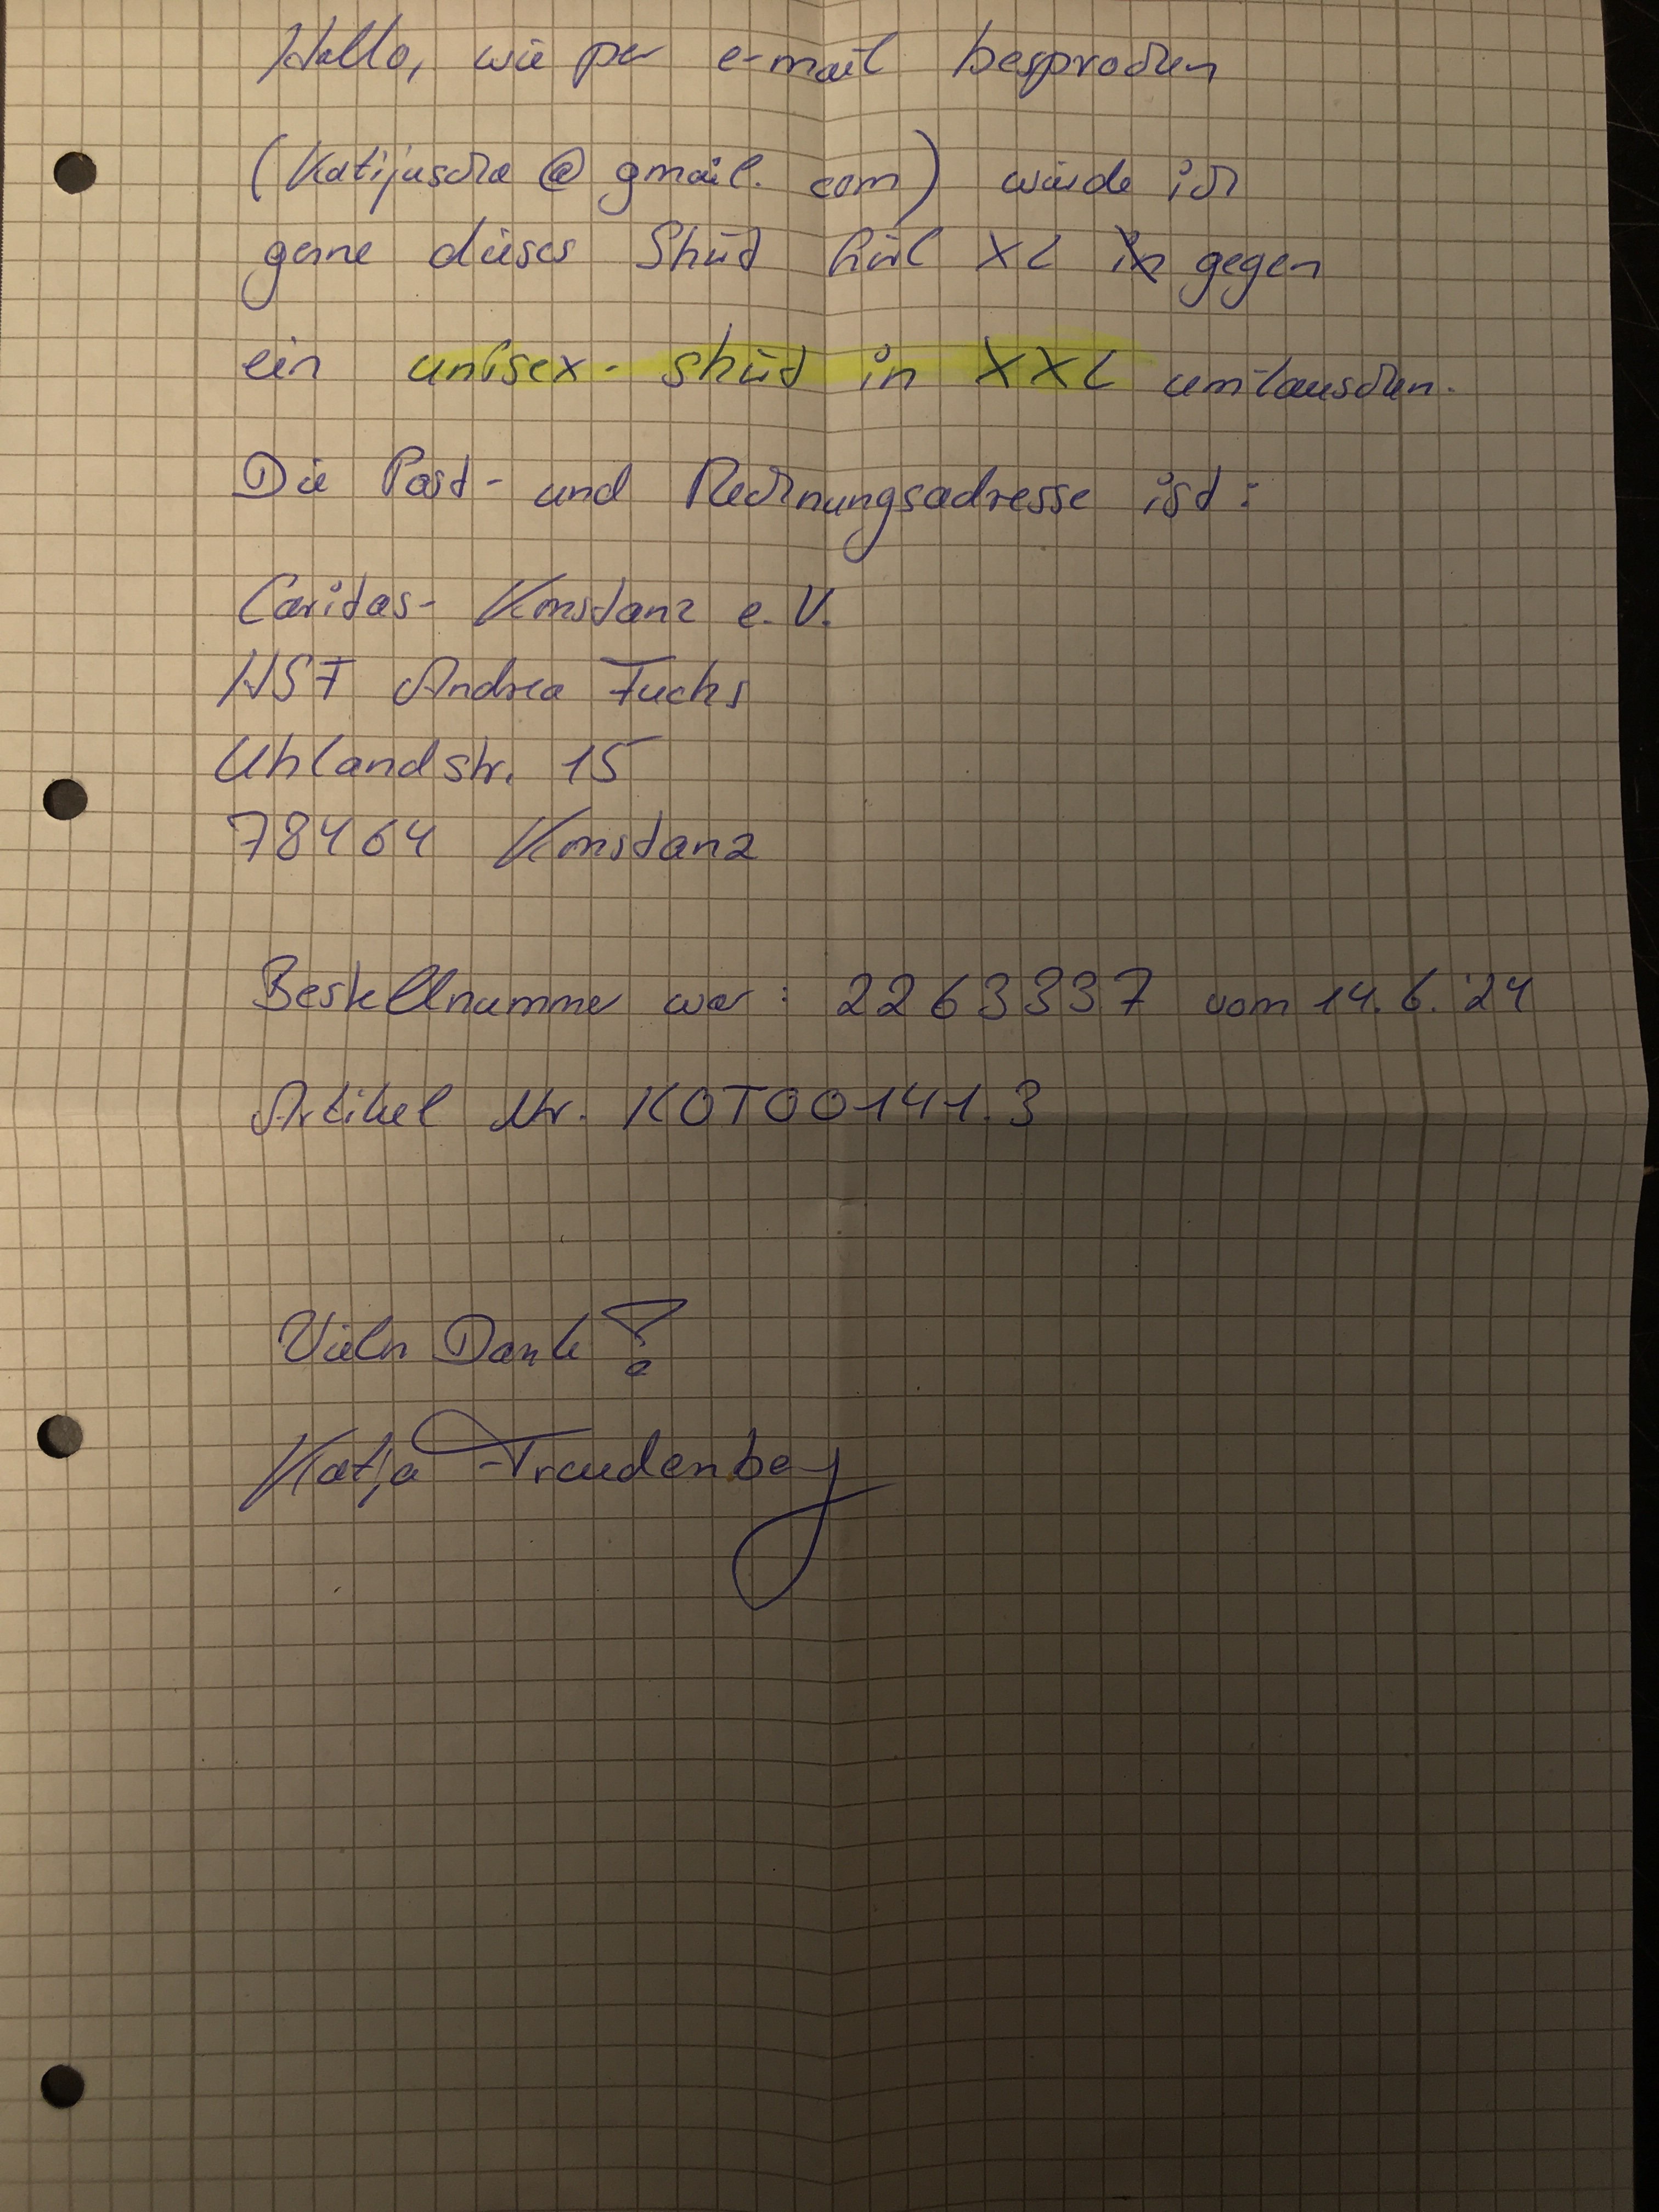 Hallo, wie per e-mail besprochen
(Katijuscha@gmail.com) würde ich
gerne dieses Shirt Girl XL in gegen
ein unisex-shirt in XXL umtauschen.
Die Post- und Rechnungsadresse ist:
Caritas- Konstanz e.V.
HSF Andrea Fuchs
Uhlandstr. 15
78464 Konstanz
Bestellnummer war: 2263337 vom 14.6.'24
Artikel Nr. KOT00141.3
Vielen Dank!
Katja